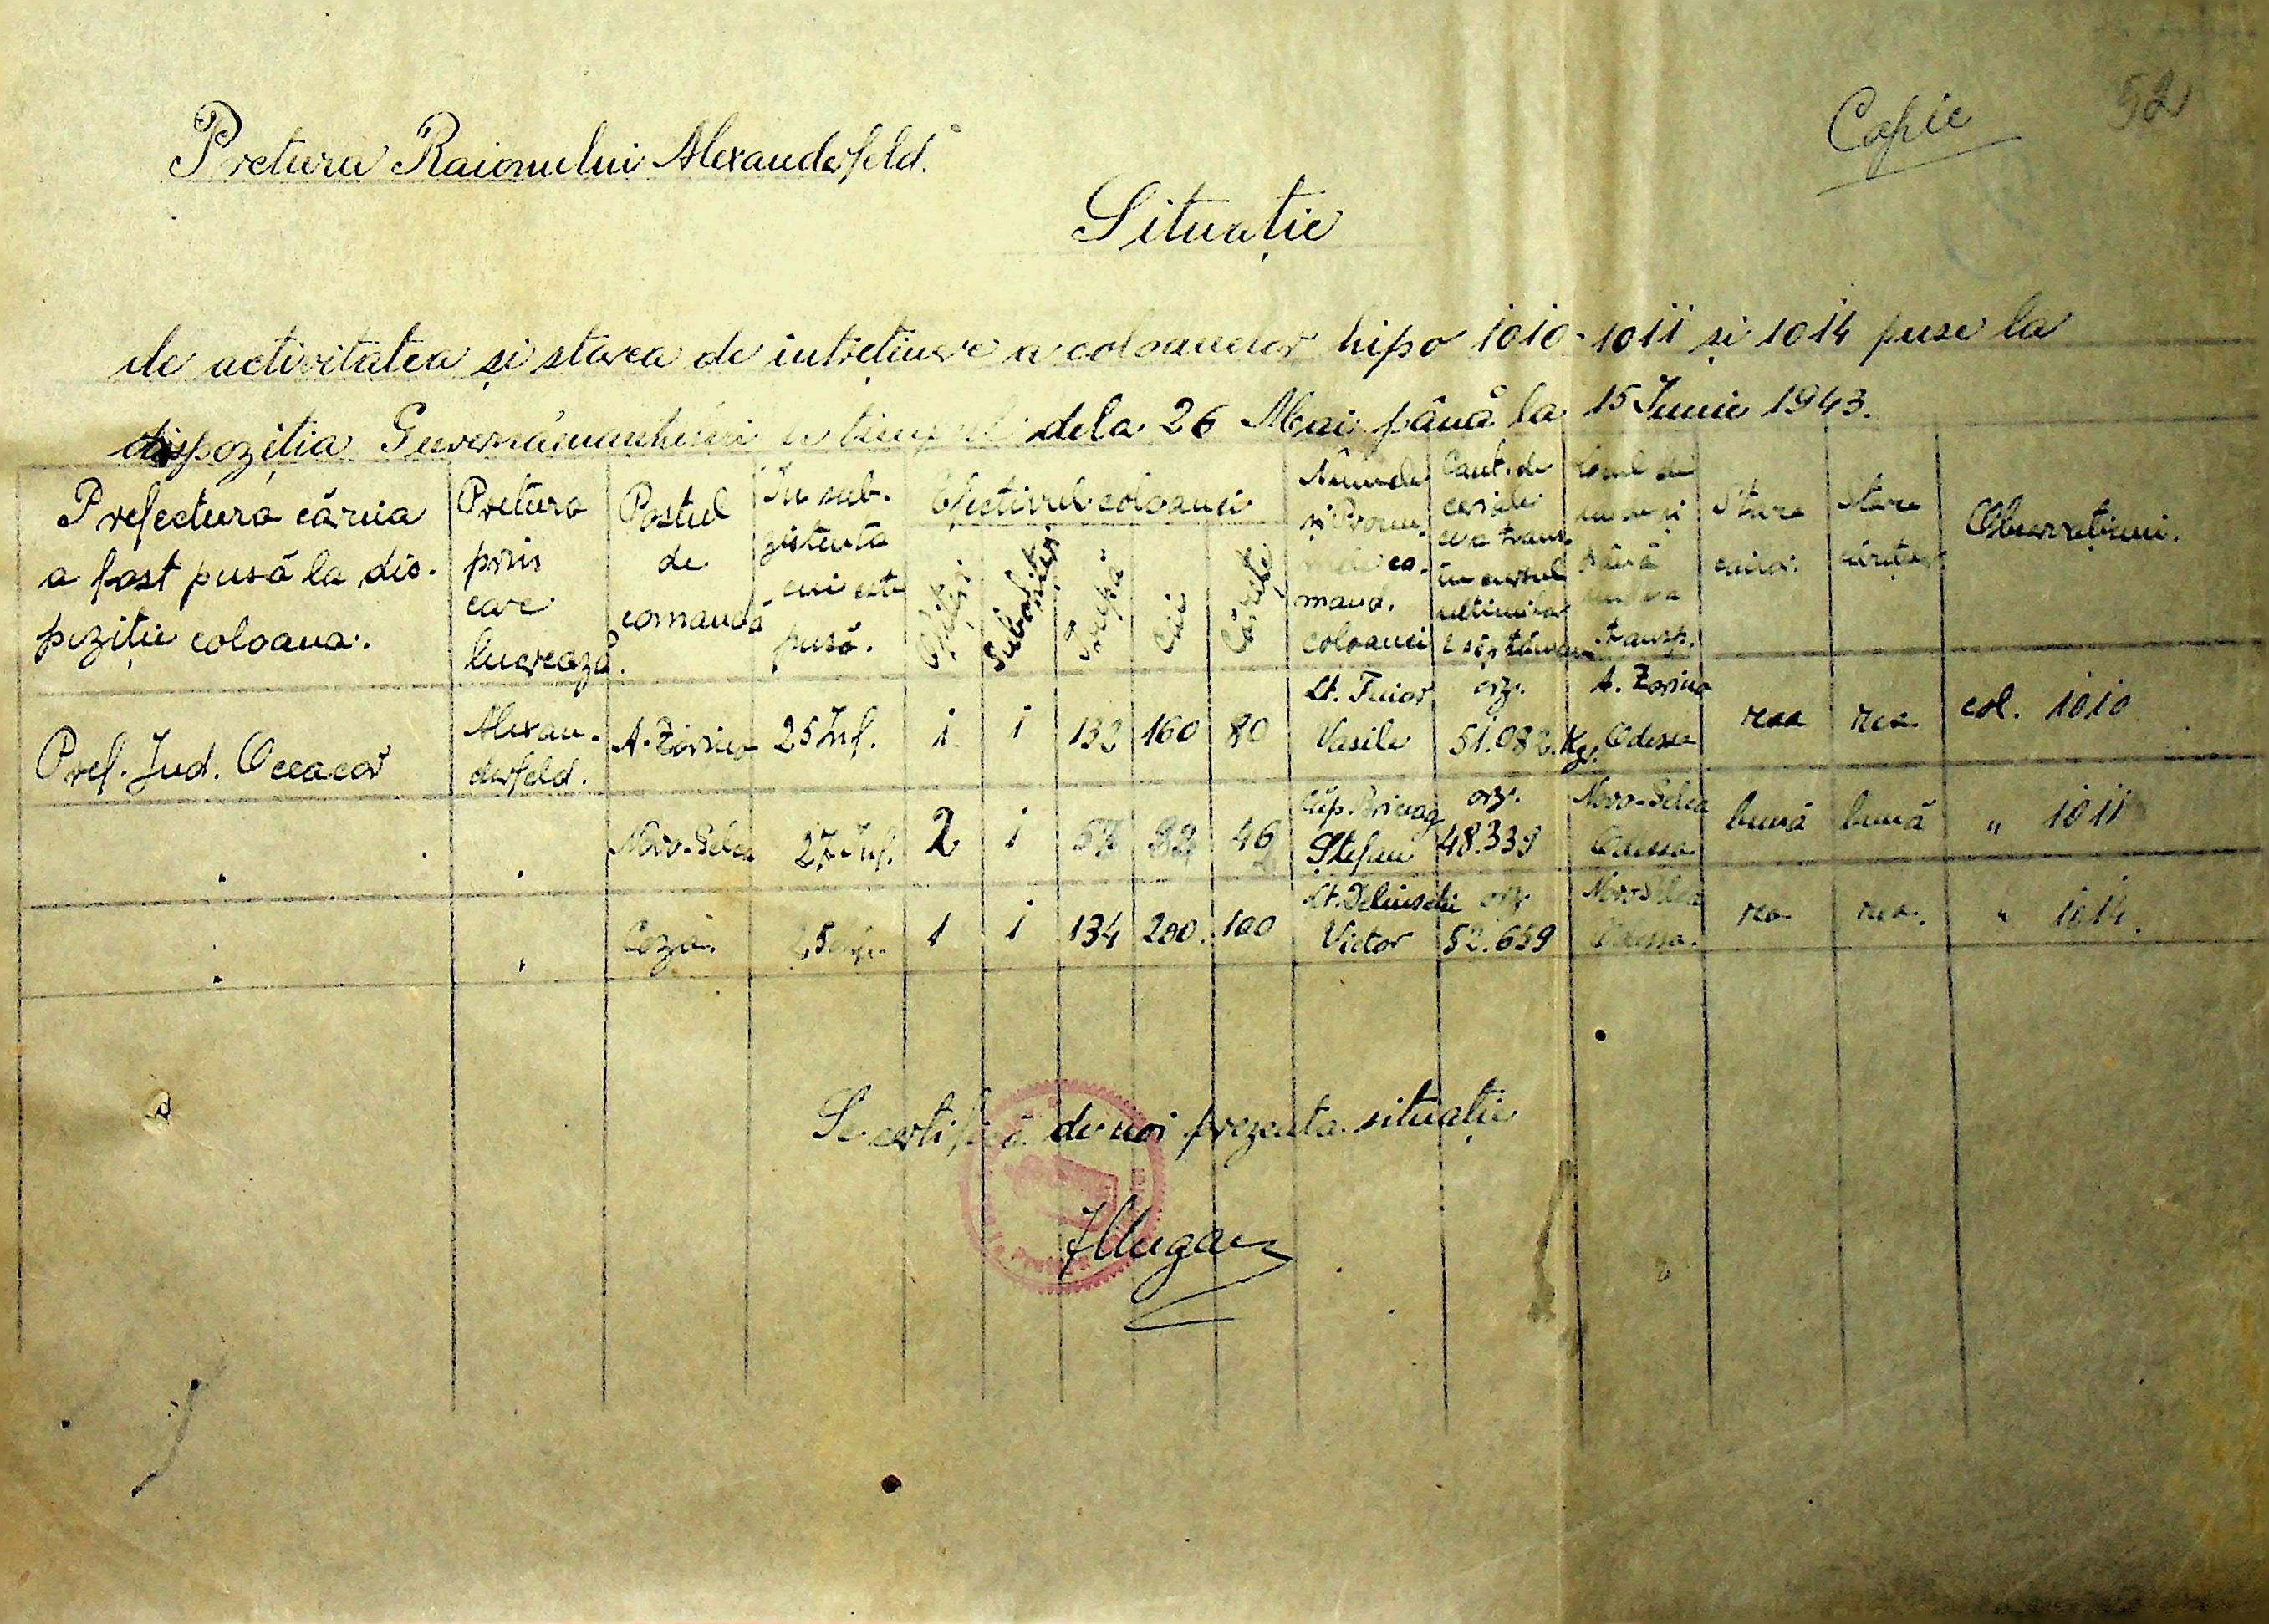 Copie 52
Pretura Raionului Alexanderfeld.
Situație
de activitatea și starea de întreținere a coloanelor hipo 1010-1011 și 1014 puse la
dispoziția Guvernământului în timpul dela 26 Mai până la 15 Iunie 1943.
Prefectura căruia
a fost pusă la dis.
poziție coloana.
Pretura
prin
care
lucrează.
Postul
de
comandă
In sub.
zistența
cui este
pusă.
Efectivul coloanei
Ofițeri
Subofițeri
Trupă
Cai
Căruțe
Numele
și Pronu.
mele co.
mand.
coloanei
Cant. de
cereale
ce a trans.
în cursul
ultimilor
2 săptămâni
Locul de
unde și
până
unde a
transp.
Starea
cailor.
Starea
căruțelor
Observațiuni.
Pref. Jud. Oceacov
Alexan.
derfeld.
A. Zorino
25 Inf.
1
1
132
160
80
Lt.
Vasile
orz.
51.082.Kg.
A. Zorino
Odessa
rea
rea
col. 1010
Novo-Selca
27 Inf.
2
1
92
46
Căp.
Ștefan
orz.
48.339
Novo-Selca
Odessa
bună
bună
" 1011
25 Inf.
1
1
134
200.
100
Lt. Delinschi
Victor
orz
52.659
Novo-Selca
Odessa.
rea
rea.
" 1014.
Se certifică de noi prezenta situație